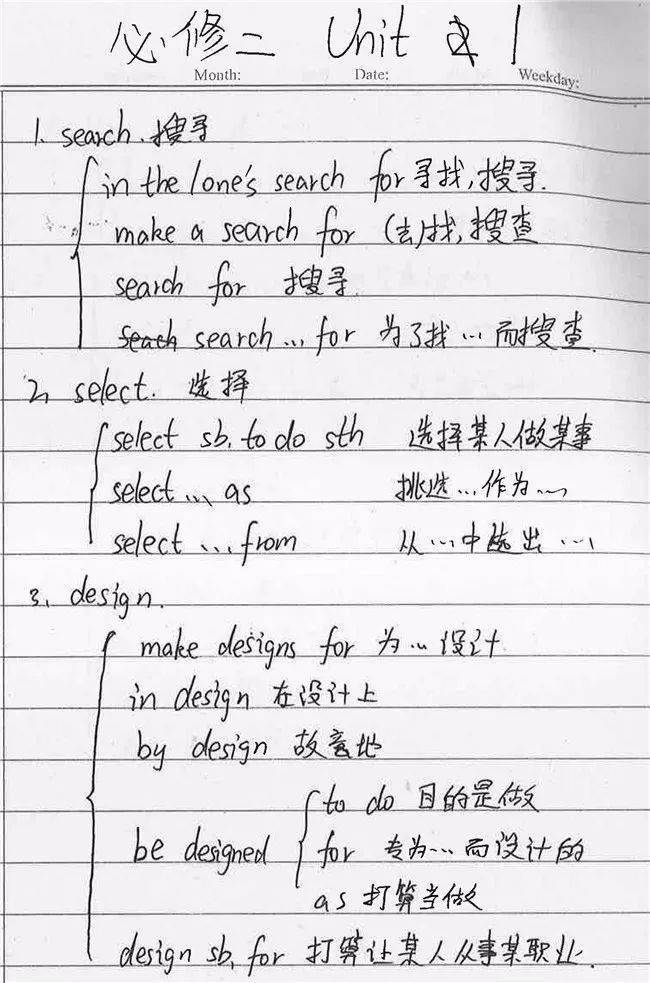 必修二 Unit 1
Month: Date: Weekday:
1. search. 搜寻
in the/one's search for 寻找,搜寻.
make a search for (去)找,搜查
search for 搜寻
search ... for 为了找 ... 而搜查.
2, select. 选择
select sb. to do sth 选择某人做某事
select ... as 挑选 ... 作为 ...
select ... from 从 ... 中选出 ...
3. design.
make designs for 为 ... 设计
in design 在设计上
by design 故意地
to do 目的是做
be designed for 专为 ... 而设计的
as 打算当做
design sb. for 打算让某人从事某职业.